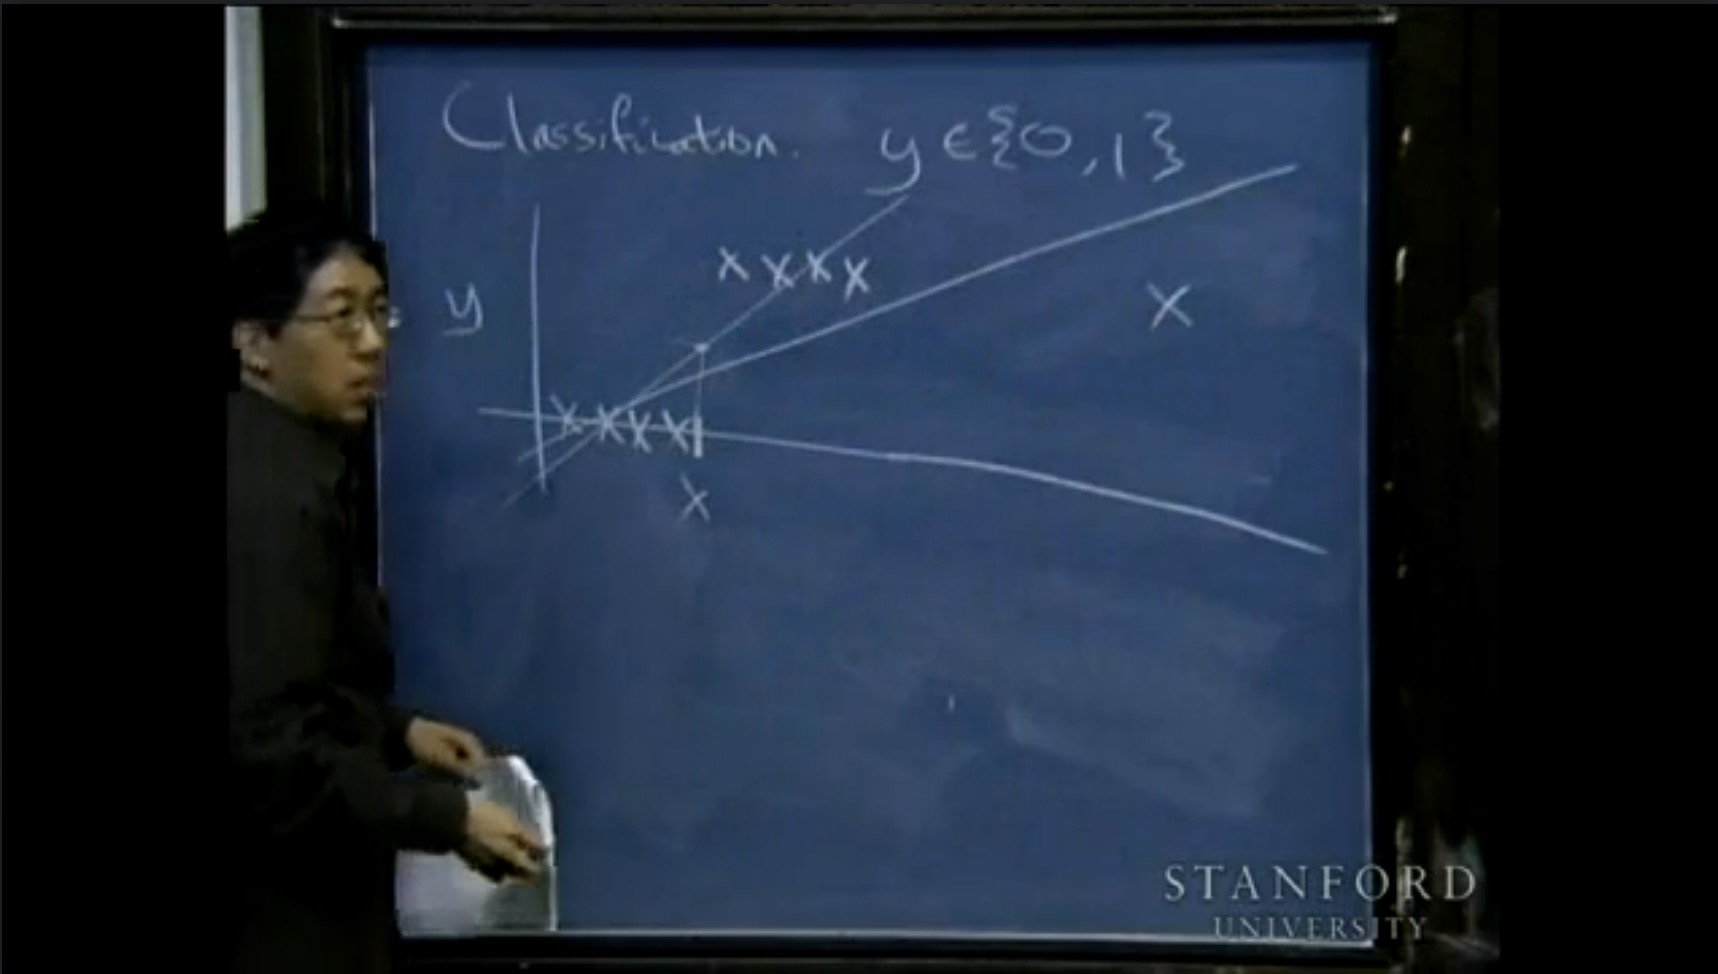 Classification. y ∈ {0, 1}
y
x
STANFORD
UNIVERSITY